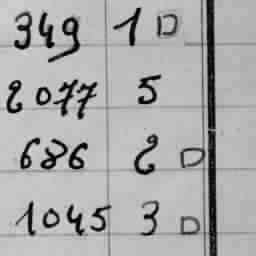 349 1 D
2077 5
686 2 D
1045 3 D